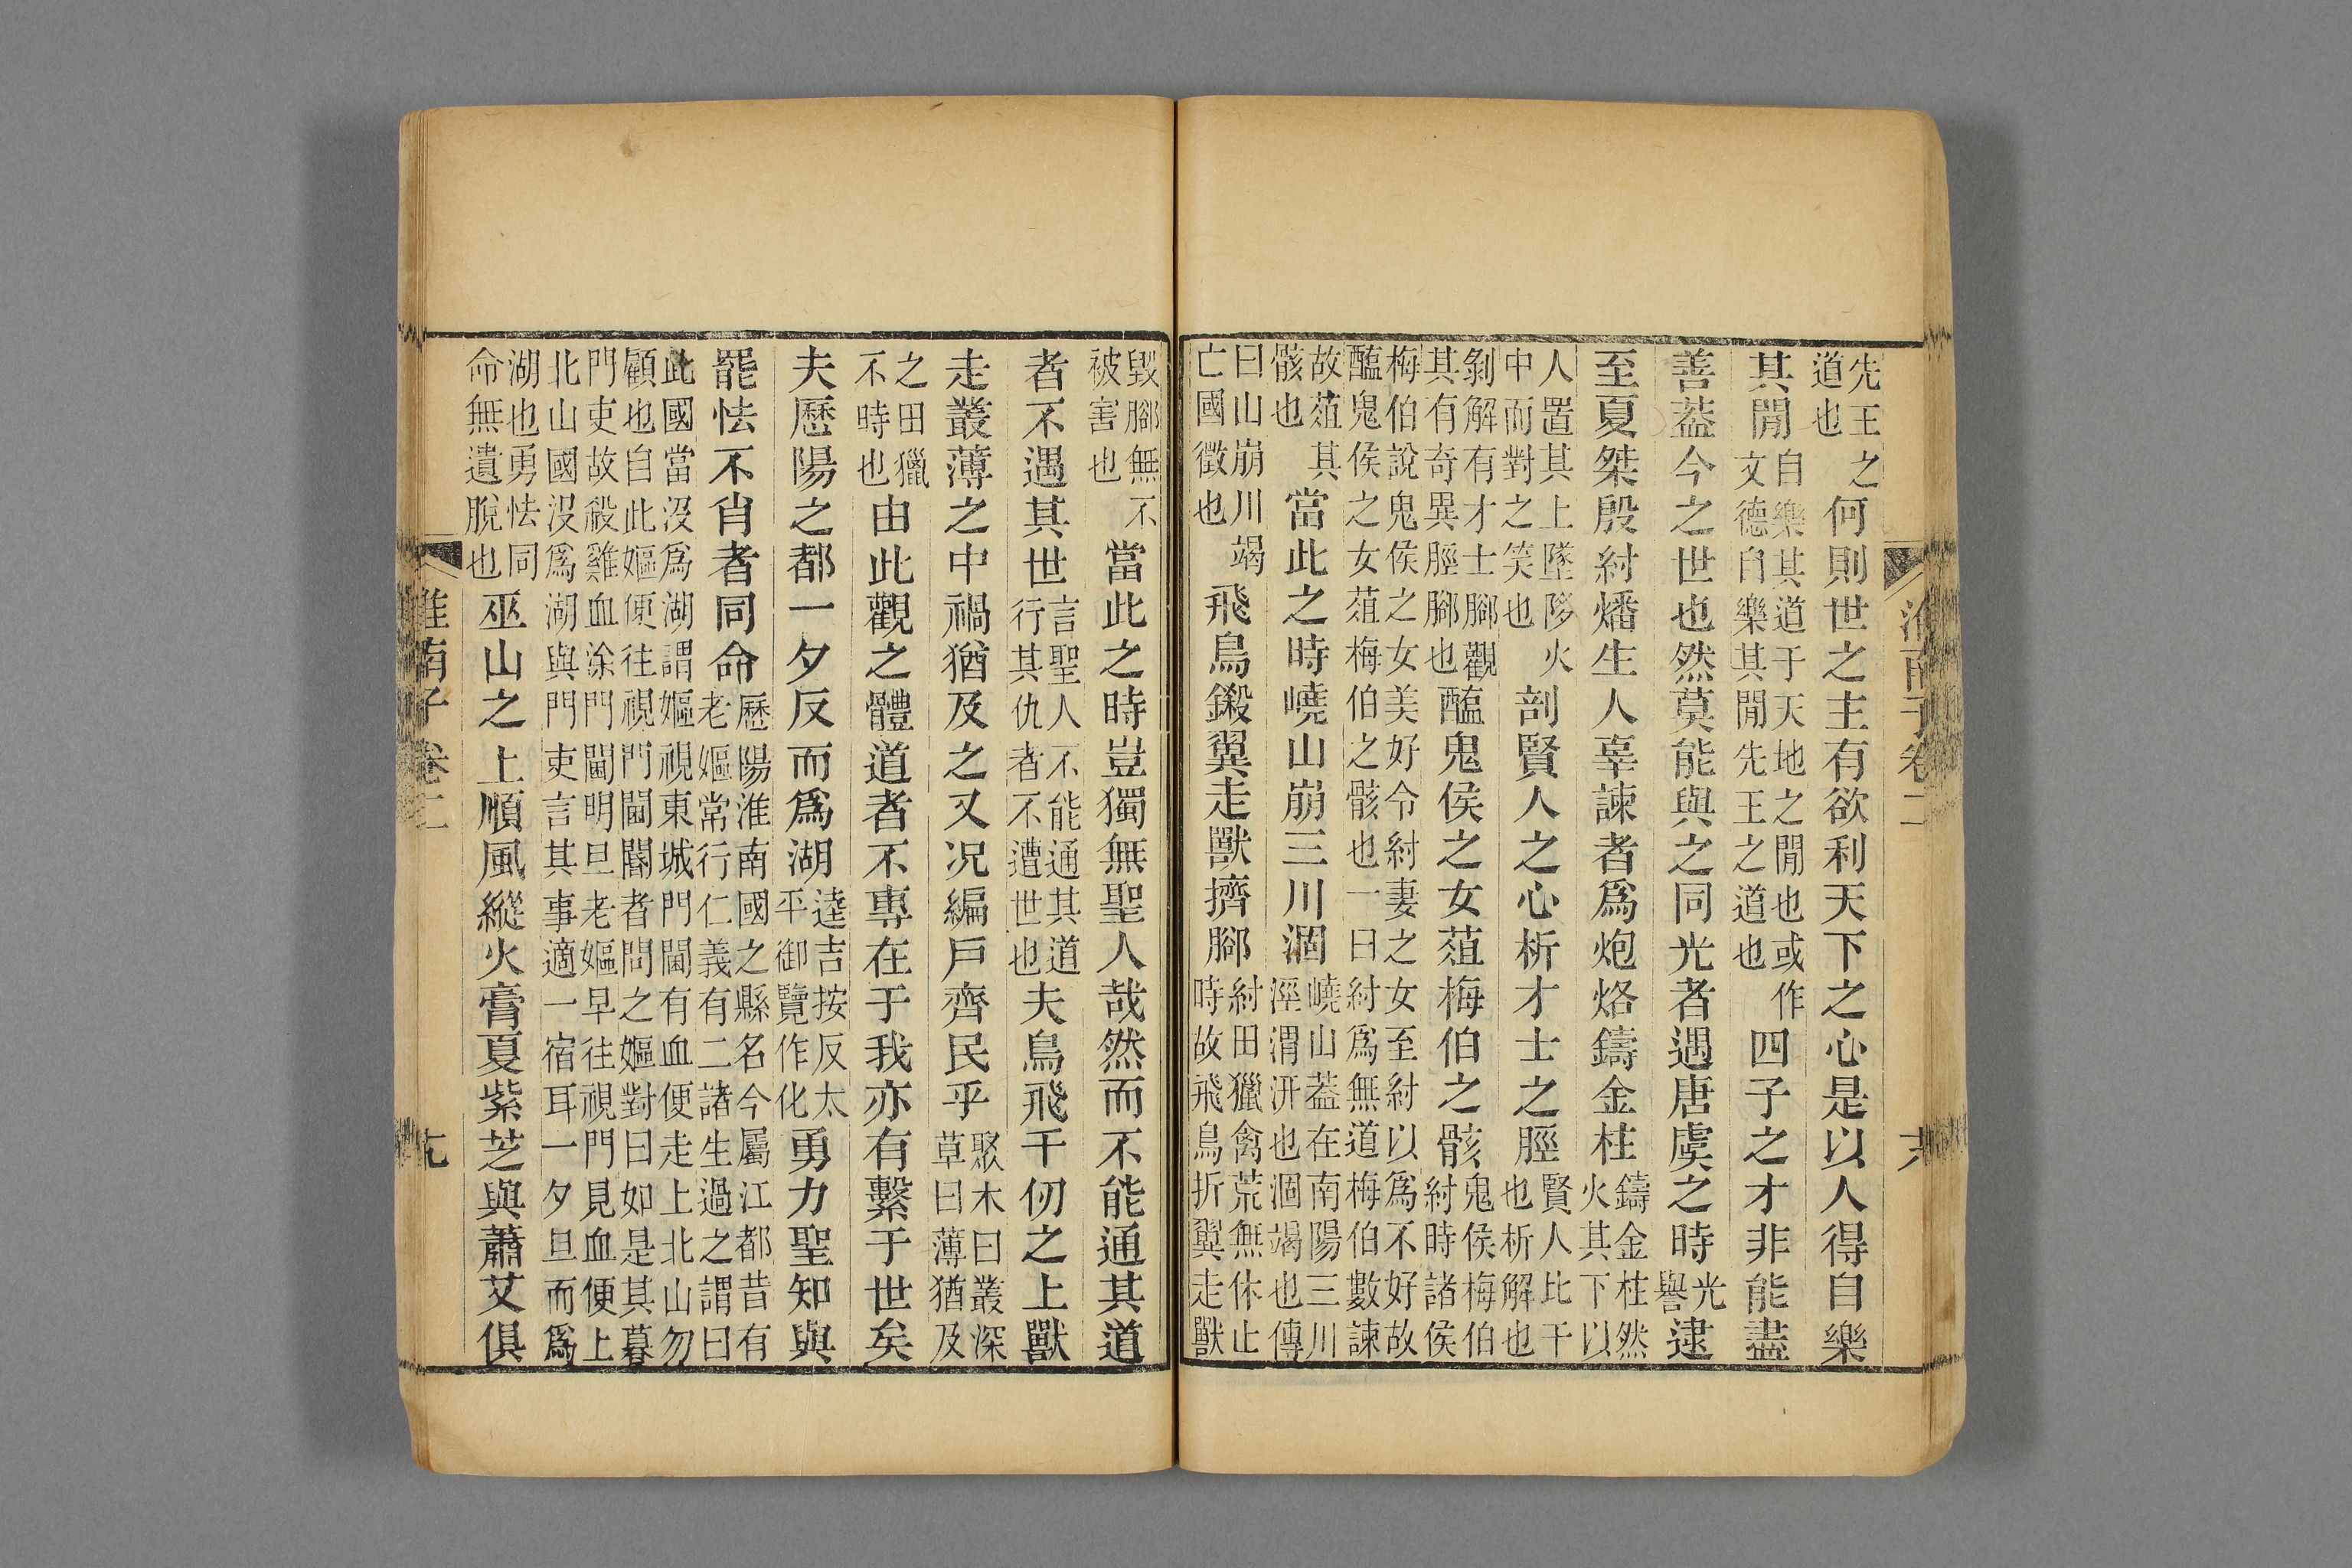 淮南子卷二
先王之道也何則世之主有欲利天下之心是以人得自樂
其閒自樂其道于天地之閒也或作文德自樂其閒先王之道也四子之才非能盡
善葢今之世也然莫能與之同光者遇唐虞之時光譽逮
至夏桀殷紂燔生人辜諫者爲炮烙鑄金柱鑄金柱然火其下以
人置其上墜陊火中而對之笑也剖賢人之心析才士之脛賢人比干也析解也
剝解有才士腳觀其有奇異脛腳也醢鬼侯之女葅梅伯之骸鬼侯梅伯紂時諸侯
梅伯說鬼侯之女美好令紂妻之女至紂以爲不好故醢鬼侯之女葅梅伯之骸也一曰紂爲無道梅伯數諫
故葅其骸也當此之時嶢山崩三川涸嶢山葢在南陽三川涇渭汧也涸竭也傳
曰山崩川竭亡國徵也飛鳥鎩翼走獸擠腳紂田獵禽荒無休止時故飛鳥折翼走獸
毀腳無不被害也當此之時豈獨無聖人哉然而不能通其道
者不遇其世言聖人不能通其道行其仇者不遭世也夫鳥飛千仞之上獸
走叢薄之中禍猶及之又況編戶齊民乎聚木曰叢深草曰薄猶及
之田獵不時也由此觀之體道者不專在于我亦有繫于世矣
夫歷陽之都一夕反而爲湖逵吉按反太平御覽作化勇力聖知與
罷怯不肖者同命歷陽淮南國之縣名今屬江都昔有老嫗常行仁義有二諸生過之謂曰
此國當沒爲湖謂嫗視東城門閫有血便走上北山勿顧也自此嫗便往視門閫閽者問之嫗對曰如是其暮
門吏故殺雞血涂門閫明旦老嫗早往視門見血便上北山國沒爲湖與門吏言其事適一宿耳一夕旦而爲
湖也勇怯同命無遺脫也巫山之上順風縱火膏夏紫芝與蕭艾俱
淮南子卷二